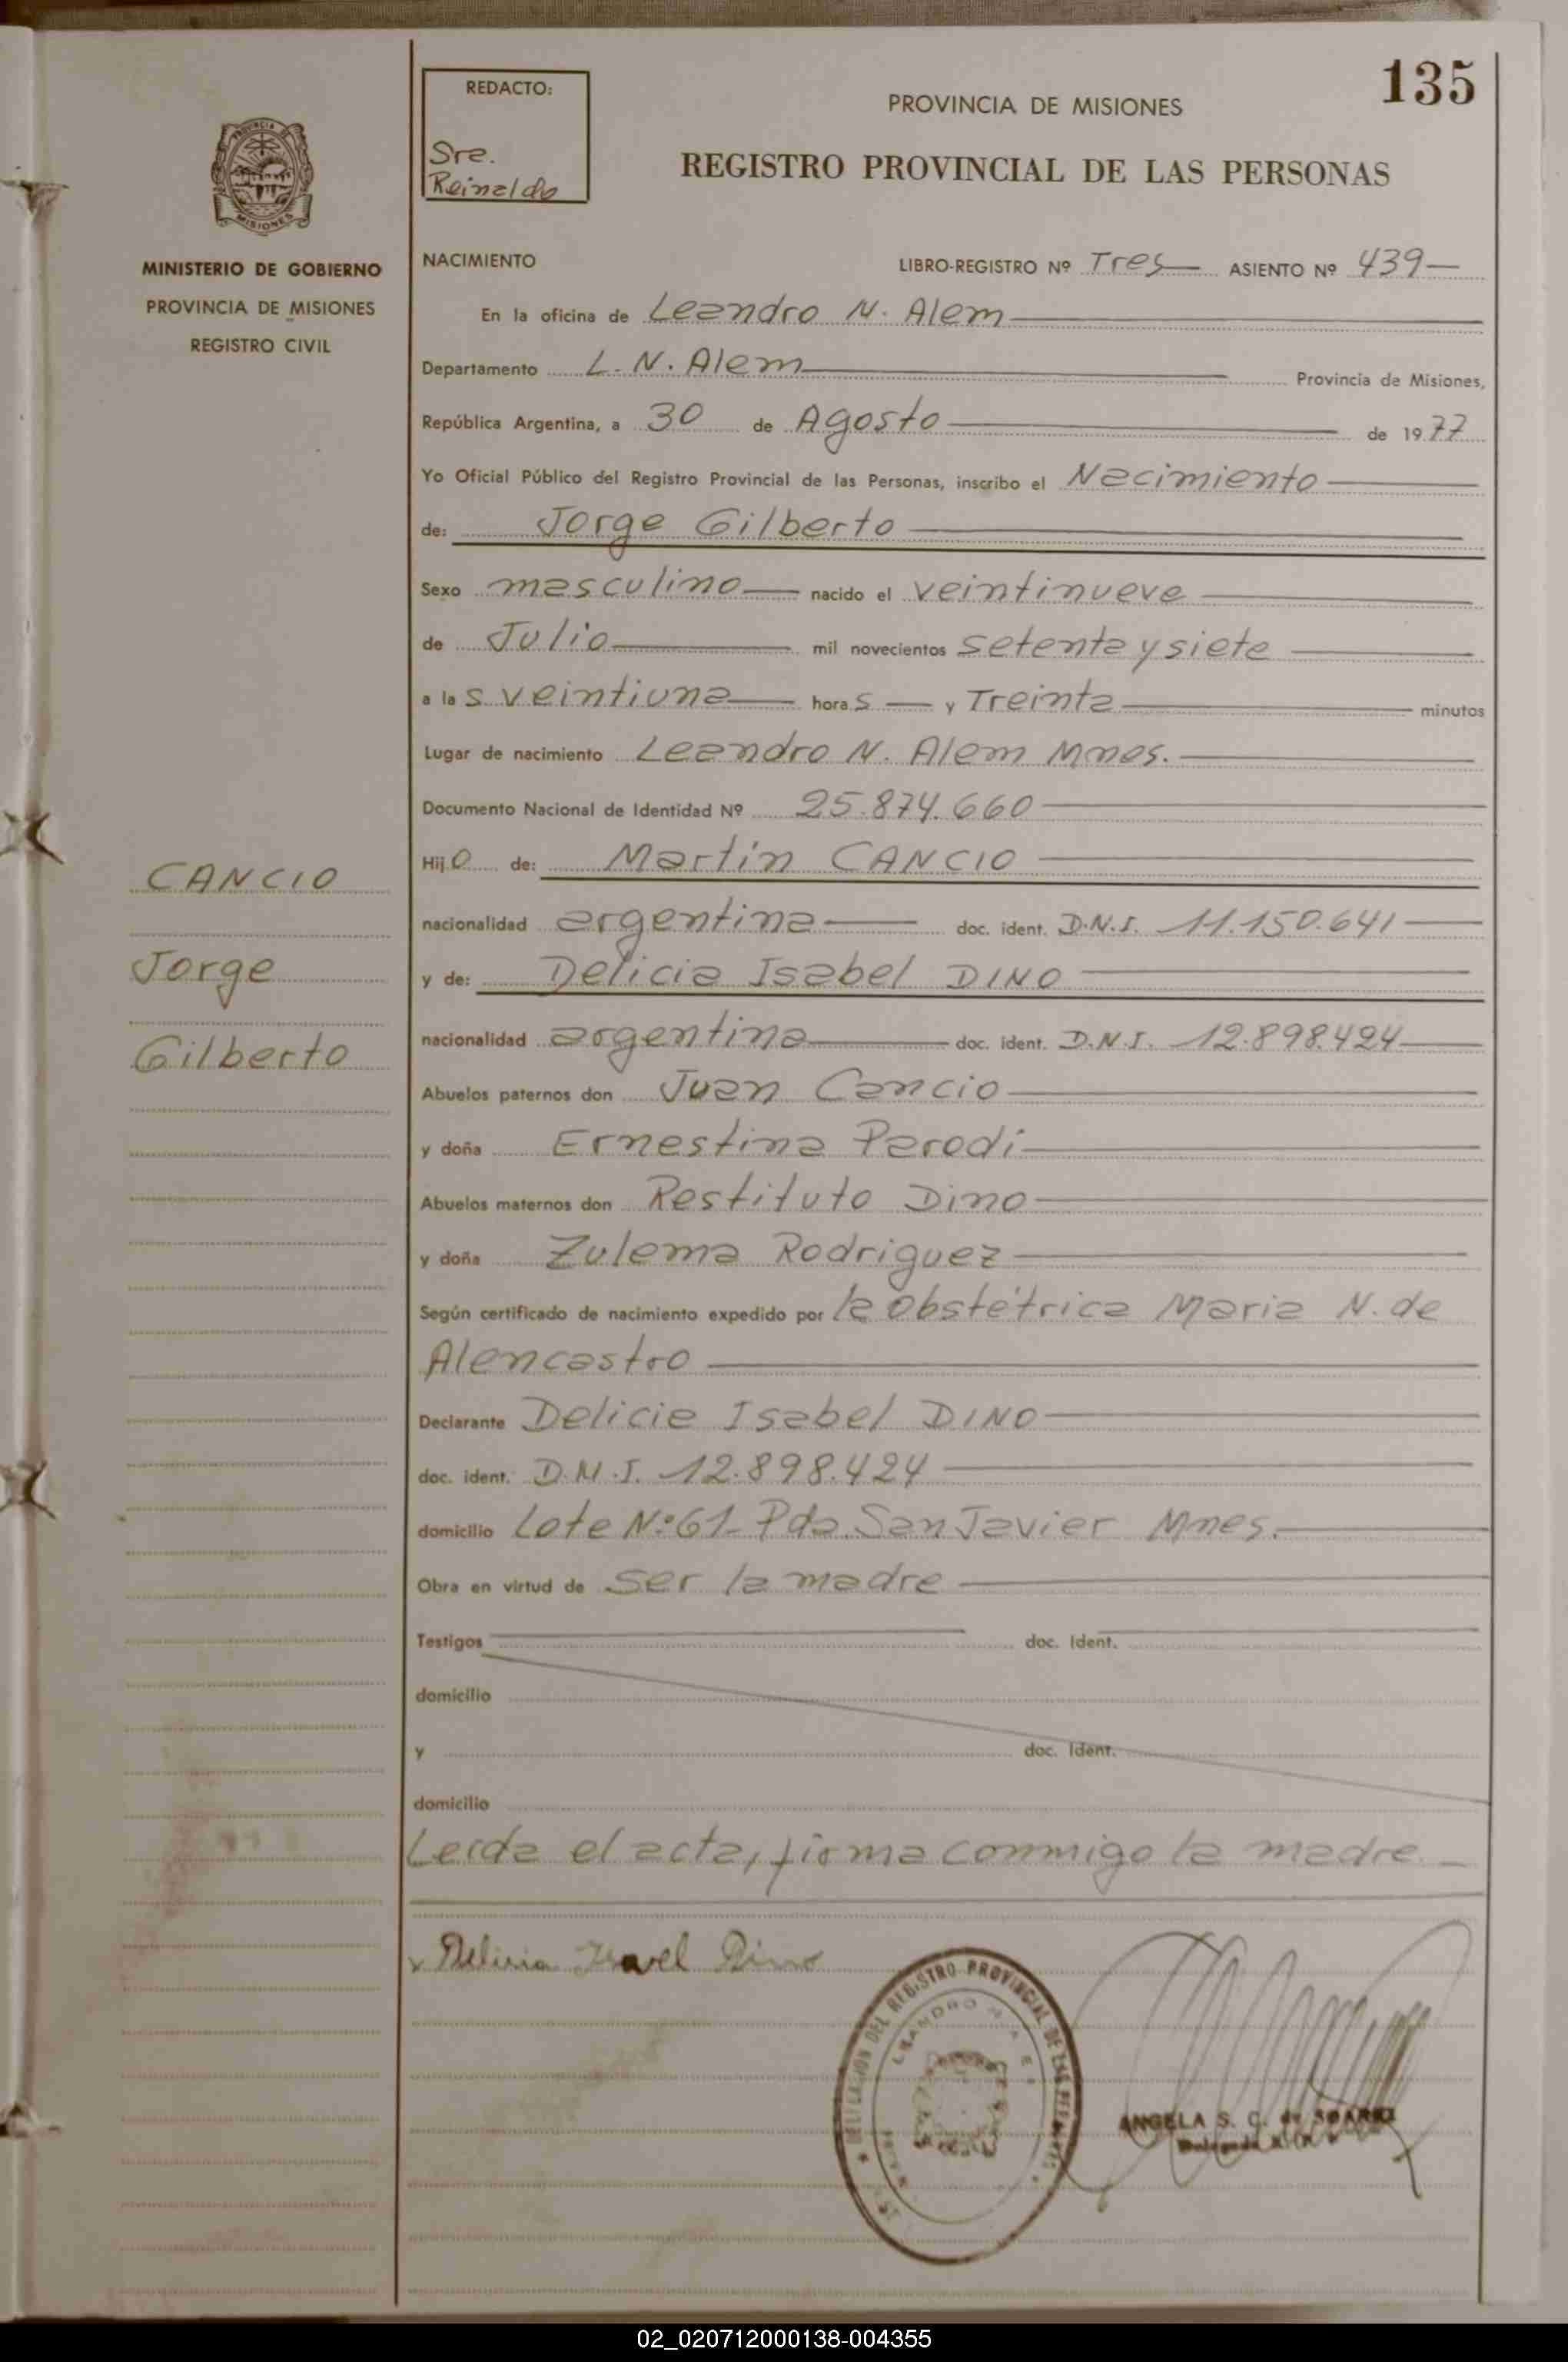 135
REDACTO:
Sra.
Reinaldo
PROVINCIA DE MISIONES
REGISTRO PROVINCIAL DE LAS PERSONAS
MINISTERIO DE GOBIERNO
PROVINCIA DE MISIONES
REGISTRO CIVIL
NACIMIENTO LIBRO-REGISTRO Nº Tres ASIENTO Nº 439
En la oficina de Leandro N. Alem
Departamento L. N. Alem Provincia de Misiones,
República Argentina, a 30 de Agosto de 1977
Yo Oficial Público del Registro Provincial de las Personas, inscribo el Nacimiento
de: Jorge Gilberto
Sexo masculino nacido el veintinueve
de Julio mil novecientos setenta y siete
a las veintiuna horas y Treinta minutos
Lugar de nacimiento Leandro N. Alem Mnes.
Documento Nacional de Identidad Nº 25.874.660
Hijo de: Martín CANCIO
nacionalidad argentina doc. ident. D.N.I. 11.150.641
y de: Delicia Isabel DINO
nacionalidad argentina doc. ident. D.N.I. 12.898.424
Abuelos paternos don Juan Cancio
y doña Ernestina Parodi
Abuelos maternos don Restituto Dino
y doña Zulema Rodriguez
Según certificado de nacimiento expedido por la Obstétrica Maria N. de
Alencastro
Declarante Delicia Isabel DINO
doc. ident. D.N.I. 12.898.424
domicilio Lote Nº 61 Pda. San Javier Mnes.
Obra en virtud de ser la madre
Testigos doc. Ident.
domicilio
y doc. Ident.
domicilio
Leida el acta, firma conmigo la madre
CANCIO
Jorge
Gilberto
x Delicia Isavel Dino
DELEGACION DEL REGISTRO PROVINCIAL DE LAS PERSONAS
LEANDRO N. ALEM
ANGELA S. C. de
02_020712000138-004355